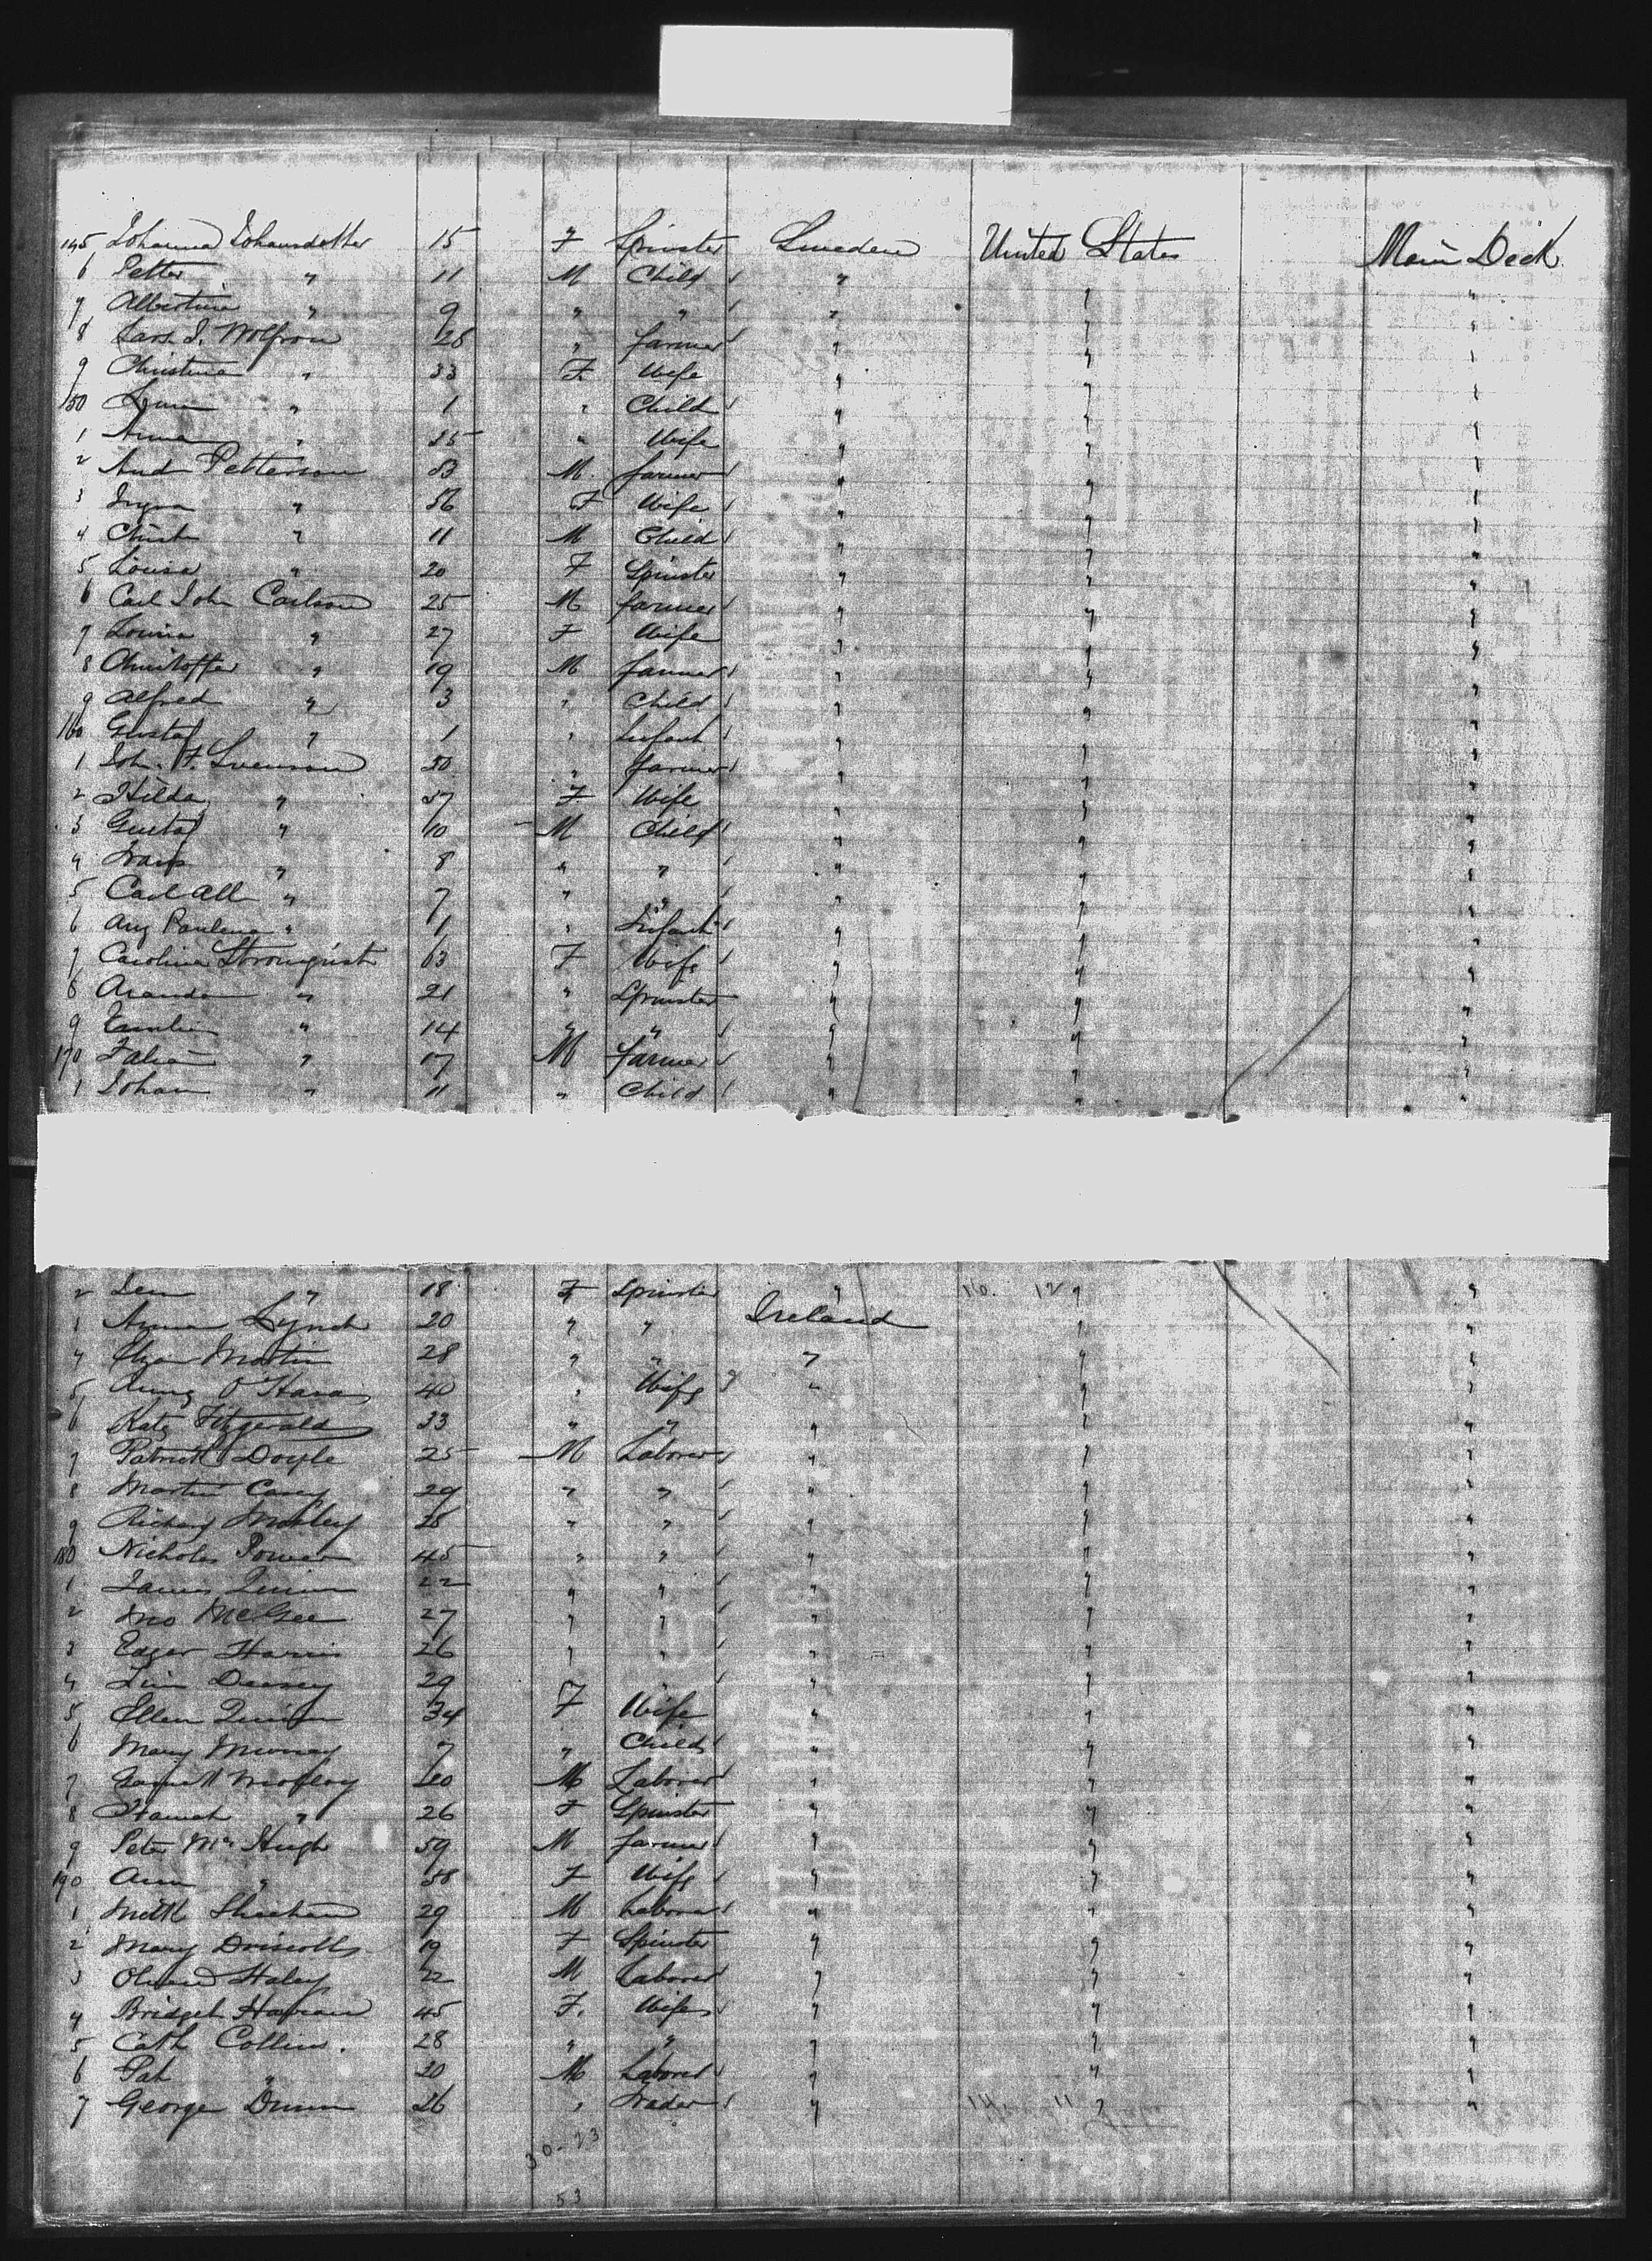 145 Johanna Johansdotter 15 F Spinster Sweden United States Main Deck
6 Petter " 11 M Child " " "
7 Albertina " 9 " " " " "
8 Lars J. 28 " farmer " " "
9 Christina " 33 F. Wife " " "
150 " 1 " Child " " "
1 Anna " 25 " Wife " " "
2 And Petterson 53 M. farmer " " "
3 " 56 F Wife " " "
4 Christ " 11 M Child " " "
5 Louisa " 20 F Spinster " " "
6 Carl John Carlson 25 M farmer " " "
7 Lovisa " 27 F Wife " " "
8 Christoffer " 19 M farmer " " "
9 Alfred " 3 " Child " " "
160 Gustaf " 1 " Infant " " "
1 Joh. F. Svenson 50 " farmer " " "
2 Hilda " 37 F Wife " " "
3 Gustaf " 10 M Child " " "
4 Frans " 8 " " " " "
5 Carl Alb " 7 " " " " "
6 Aug Paulina " 1 " Infant " " "
7 Carolina Stromquist 63 F Wife " " "
8 Amanda " 21 " Spinster " " "
9 " 14 " " " " "
170 " 17 M farmer " " "
1 Johan " 11 " Child " " "
2 " 18 F Spinster " 16. 12 " "
1 Anna Lynch 20 " " Ireland " "
4 Eliza Martin 28 " " " " "
5 O'Hara 40 " Wife " " "
6 Kate Fitzgerald 33 " " " " "
7 Patrick Doyle 25 M Laborer " " "
8 Martin Casey 29 " " " " "
9 Richard 28 " " " " "
180 Nicholas Power 45 " " " " "
1 James Quinn 22 " " " " "
2 Jno McGee 27 " " " " "
3 Edger Harris 26 " " " " "
4 29 " " " "
5 Ellen Quinn 34 F Wife " " "
6 Mary Murray 7 " Child " " "
7 40 M Laborer " " "
8 Hannah " 26 F Spinster " " "
9 Peter McHugh 59 M farmer " " "
190 Ann " 58 F Wife " " "
1 Sheehan 29 M Laborer " " "
2 Mary Driscoll 19 F Spinster " " "
3 Haley 22 M Laborer " " "
4 Bridget 45 F. Wife " " "
5 Cath Collins. 28 " " " " "
6 Pat " 30 M Laborer " " "
7 George Dunn 26 " Trader " 14 11 " "
30-23
53